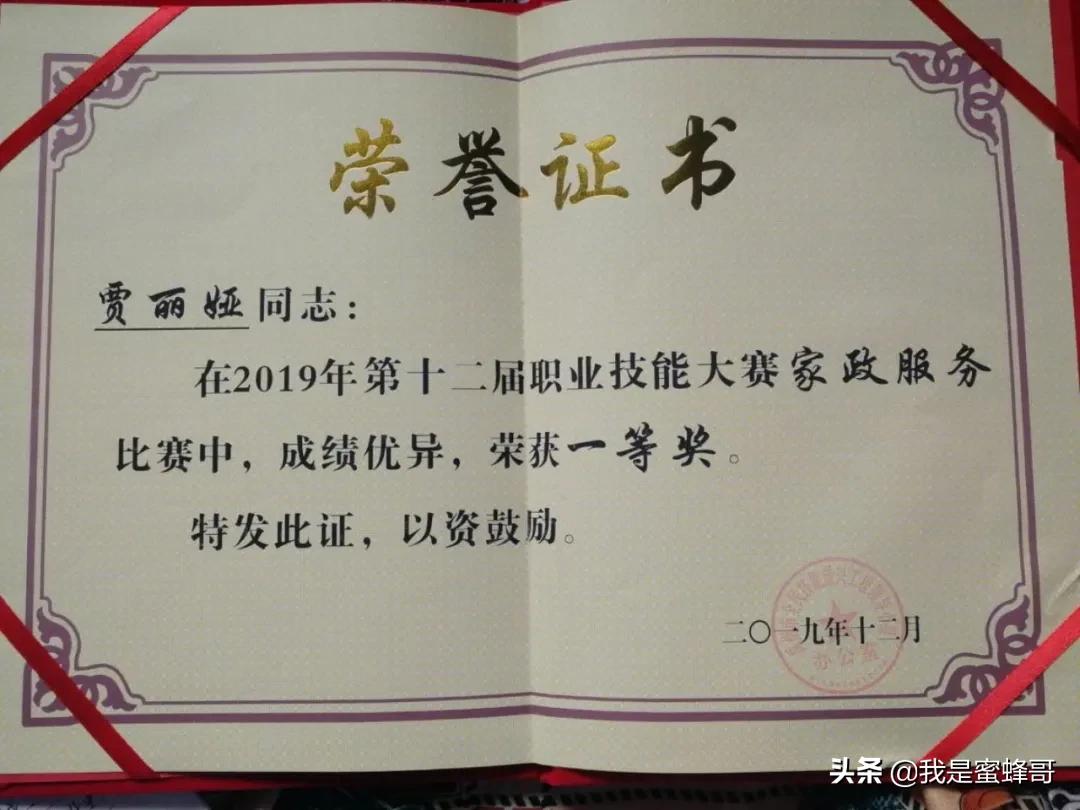 荣誉证书
贾丽娅同志：
在2019年第十二届职业技能大赛家政服务
比赛中，成绩优异，荣获一等奖。
特发此证，以资鼓励。
二〇一九年十二月
办公室
头条 @我是蜜蜂哥